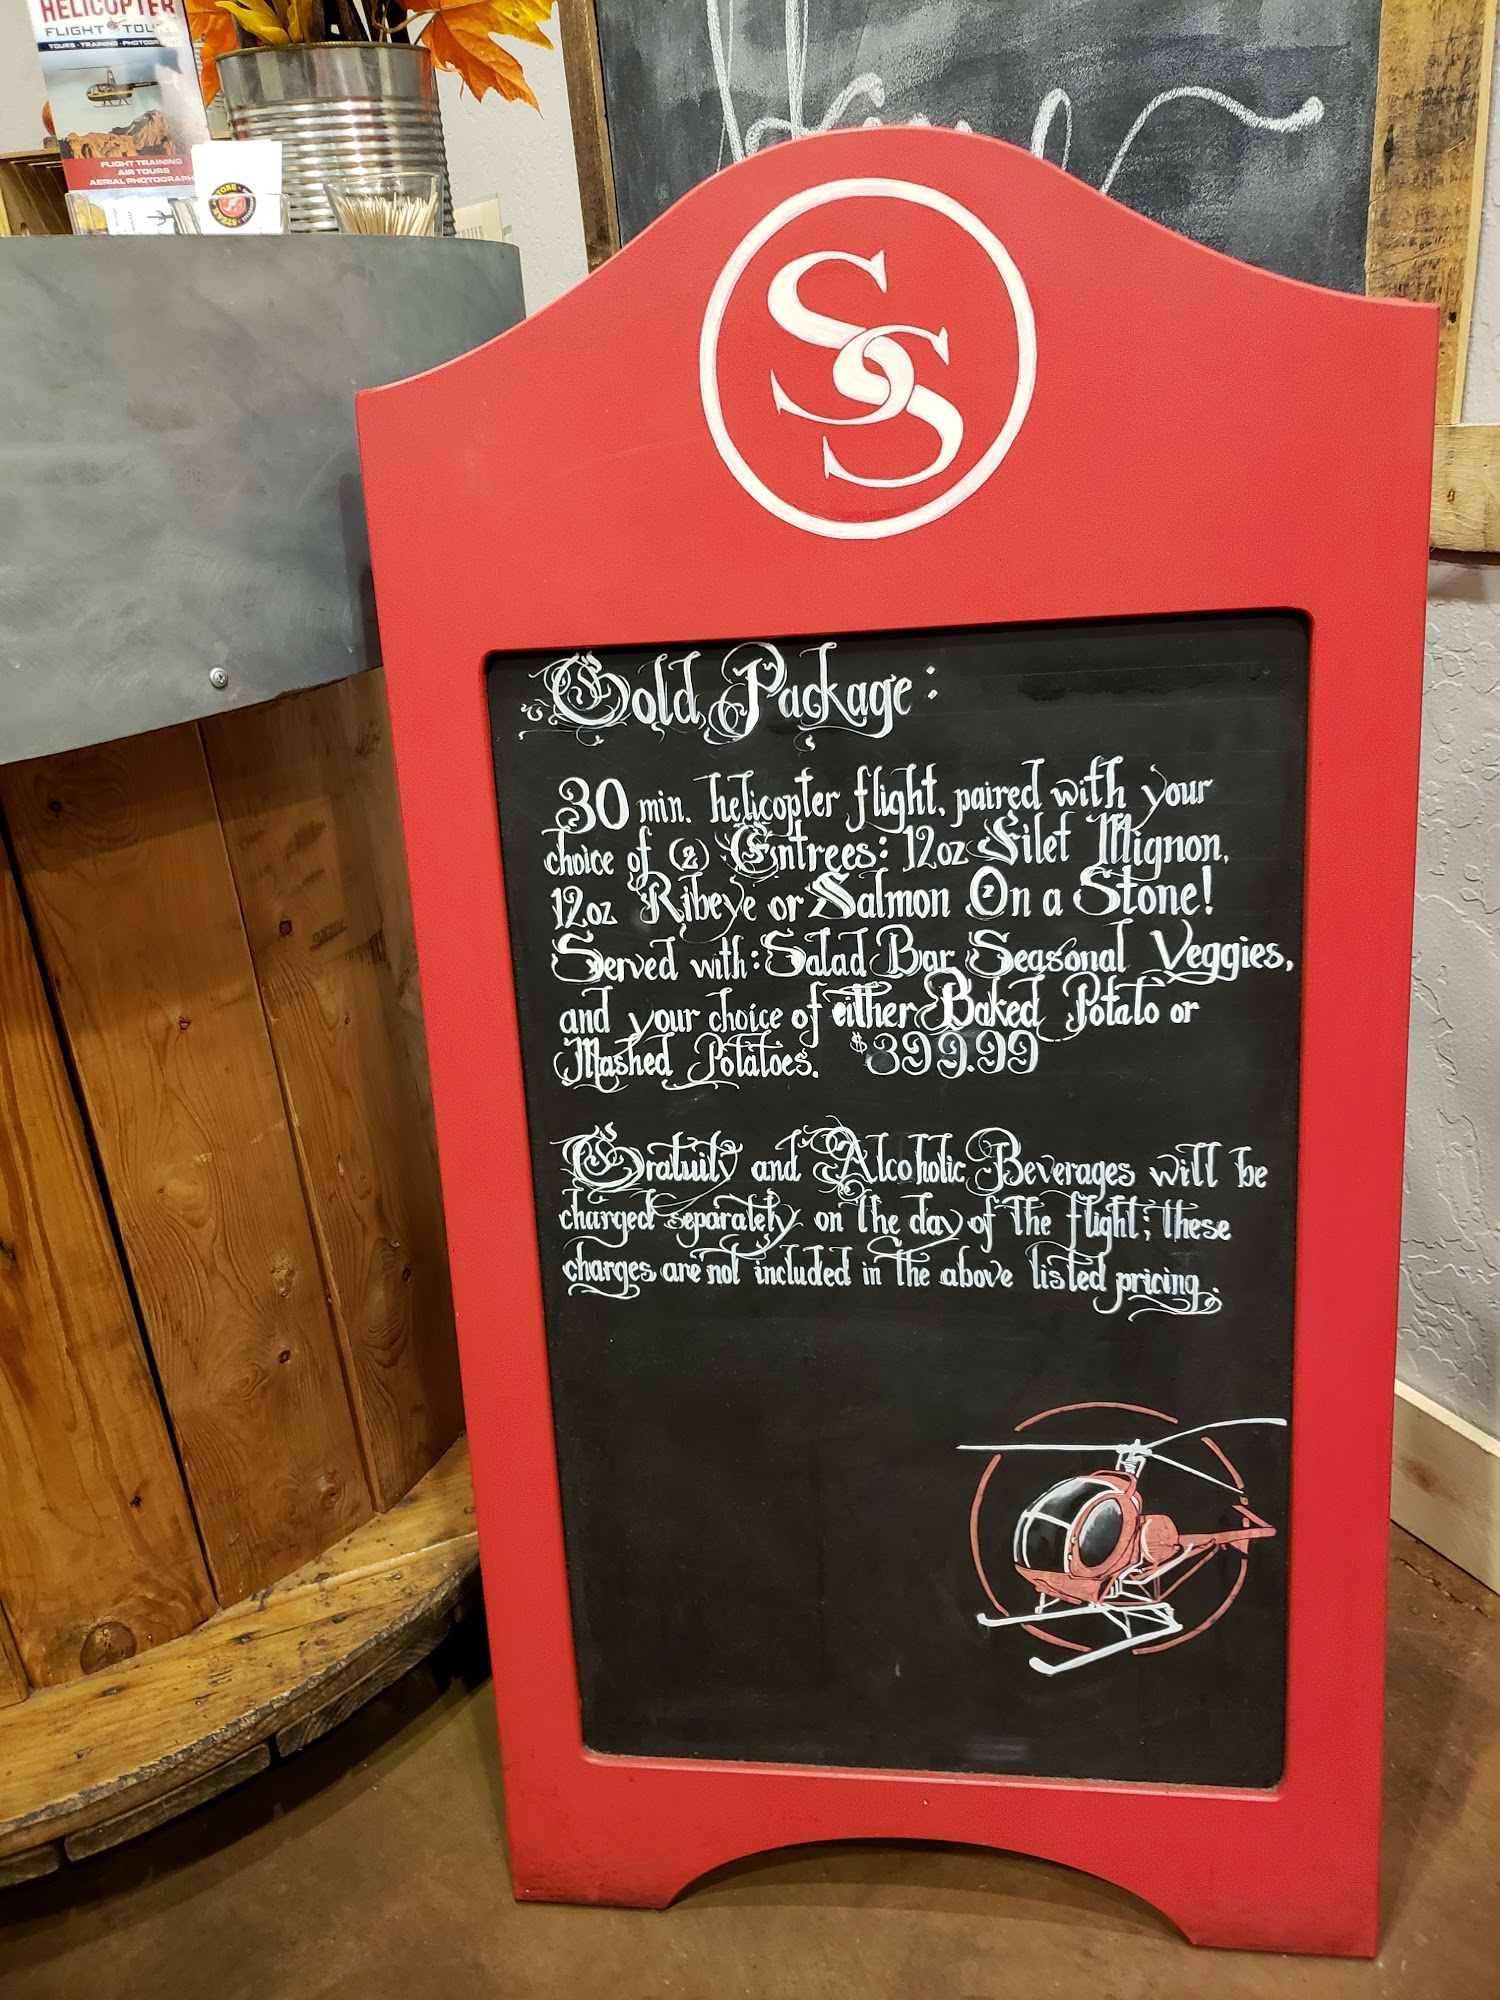 HELICOPTER
FLIGHT TOURS
TOURS • TRAINING • PHOTOGRAPHY
FLIGHT TRAINING
AIR TOURS
AERIAL PHOTOGRAPHY
SS
Gold Package:
30 min. helicopter flight, paired with your
choice of (2) Entrees: 12oz Filet Mignon,
12oz Ribeye or Salmon On a Stone!
Served with: Salad Bar, Seasonal Veggies,
and your choice of either Baked Potato or
Mashed Potatoes. $399.99
Gratuity and Alcoholic Beverages will be
charged separately on the day of the flight; these
charges are not included in the above listed pricing.